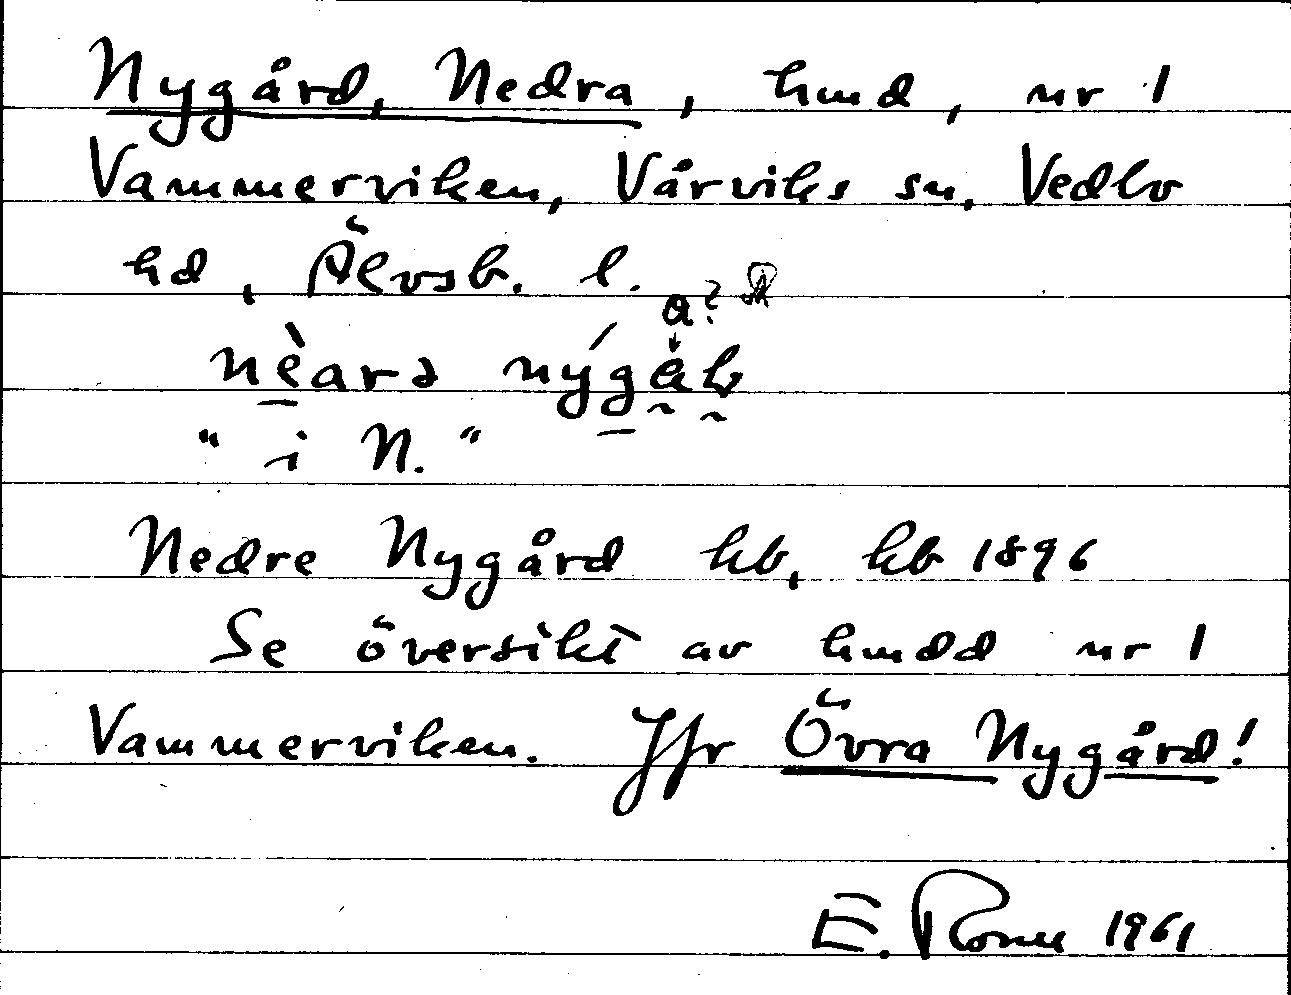 Nygård, Nedra, hmd, nr 1
Vammerviken, Vårviks sn. Vedbo
hd, Älvsb. l.
a?
"i N."
Nedre Nygård kb, kb 1896
Se översikt av hmdd nr 1
Vammerviken. Jfr Övra Nygård!
E. 1961